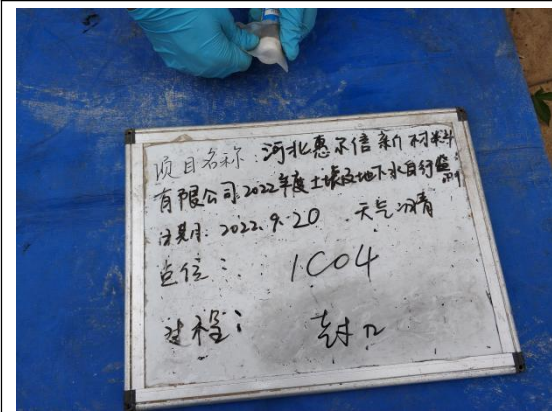 项目名称:河北惠尔信新材料
有限公司2022年度土壤及地下水自行监测
日期:2022.9.20 天气:晴
点位: 1C04
过程: 封口